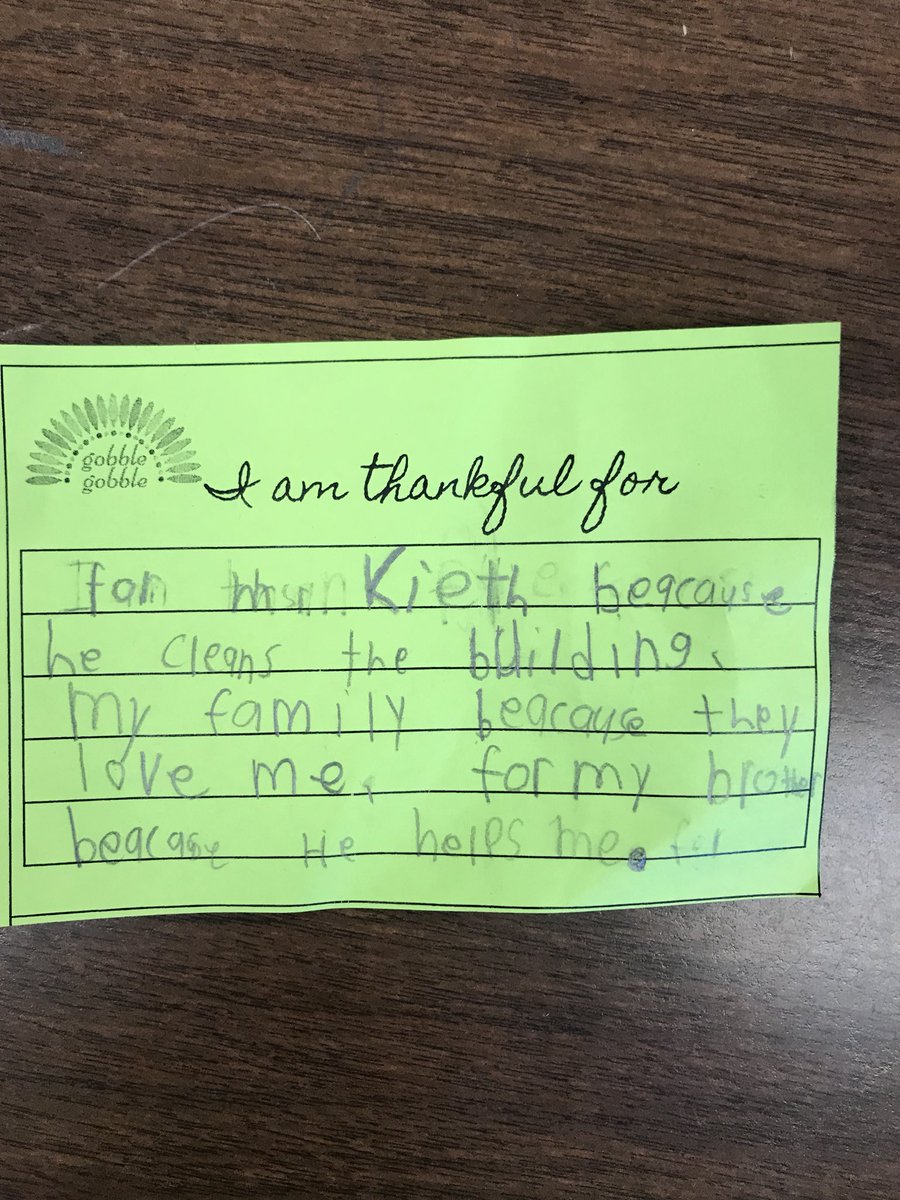 gobble
gobble
I am thankful for
Kieth beacause
he cleans the building.
my family beacause they
love me. for my brother
beacase He helps me.